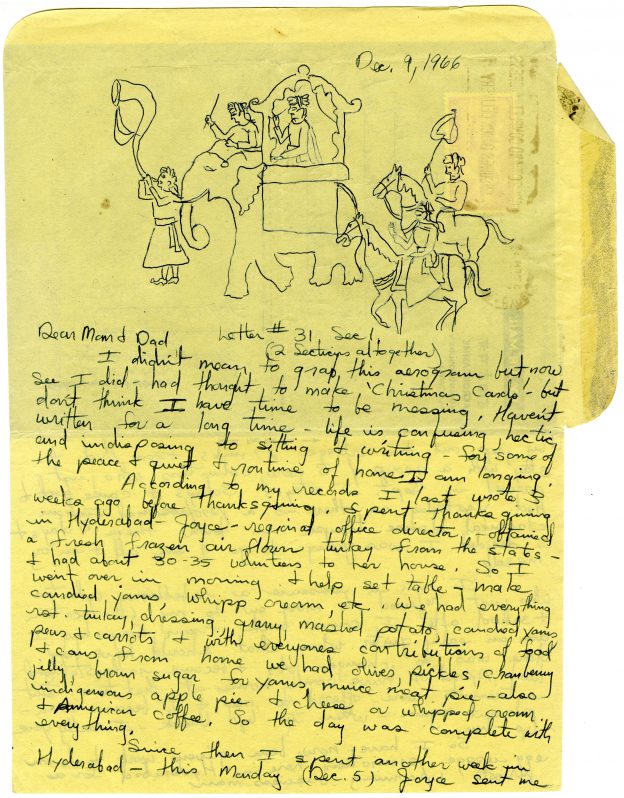 Dec. 9, 1966
Dear Mom & Dad Letter # 31, Sec 1
(2 Sections altogether)
I didn't mean to grap this aerogram but now
see I did - had thought to make 'Christmas Cards' - but
don't think I have time to be messing. Haven't
written for a long time - life is confusing, hectic,
and indisposing to sitting & writing - for some of
the peace & quiet & routine of home I am longing.
According to my records I last wrote 3
weeks ago before Thanksgiving. Spent Thanksgiving
in Hyderabad - Joyce - regional office director, obtained
a fresh frozen air flown turkey from the states -
& had about 30-35 volunteers to her house. So I
went over in morning & help set table - make
candied yams, whipp cream, etc. We had everything
rst. turkey, dressing, gravy, mashed potato, candied yams
peas & carrots & with everyones contributions of food
& cans from home we had olives, pickles, cranberry
jelly, brown sugar for yams, mince meat pie - also
indigeneous apple pie & cheese or whipped cream
& American coffee. So the day was complete with
everything.
Since then I spent another week in
Hyderabad - this Monday (Dec. 5) Joyce sent me